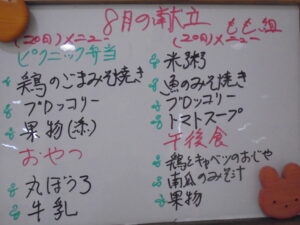 8月の献立
もも組
(20日)メニュー
ピクニック弁当
鶏のごまみそ焼き
ブロッコリー
果物(添)
おやつ
丸ぼうろ
牛乳
(20日)メニュー
米粥
魚のみそ焼き
ブロッコリー
トマトスープ
午後食
鶏とキャベツのおじや
南瓜のみそ汁
果物